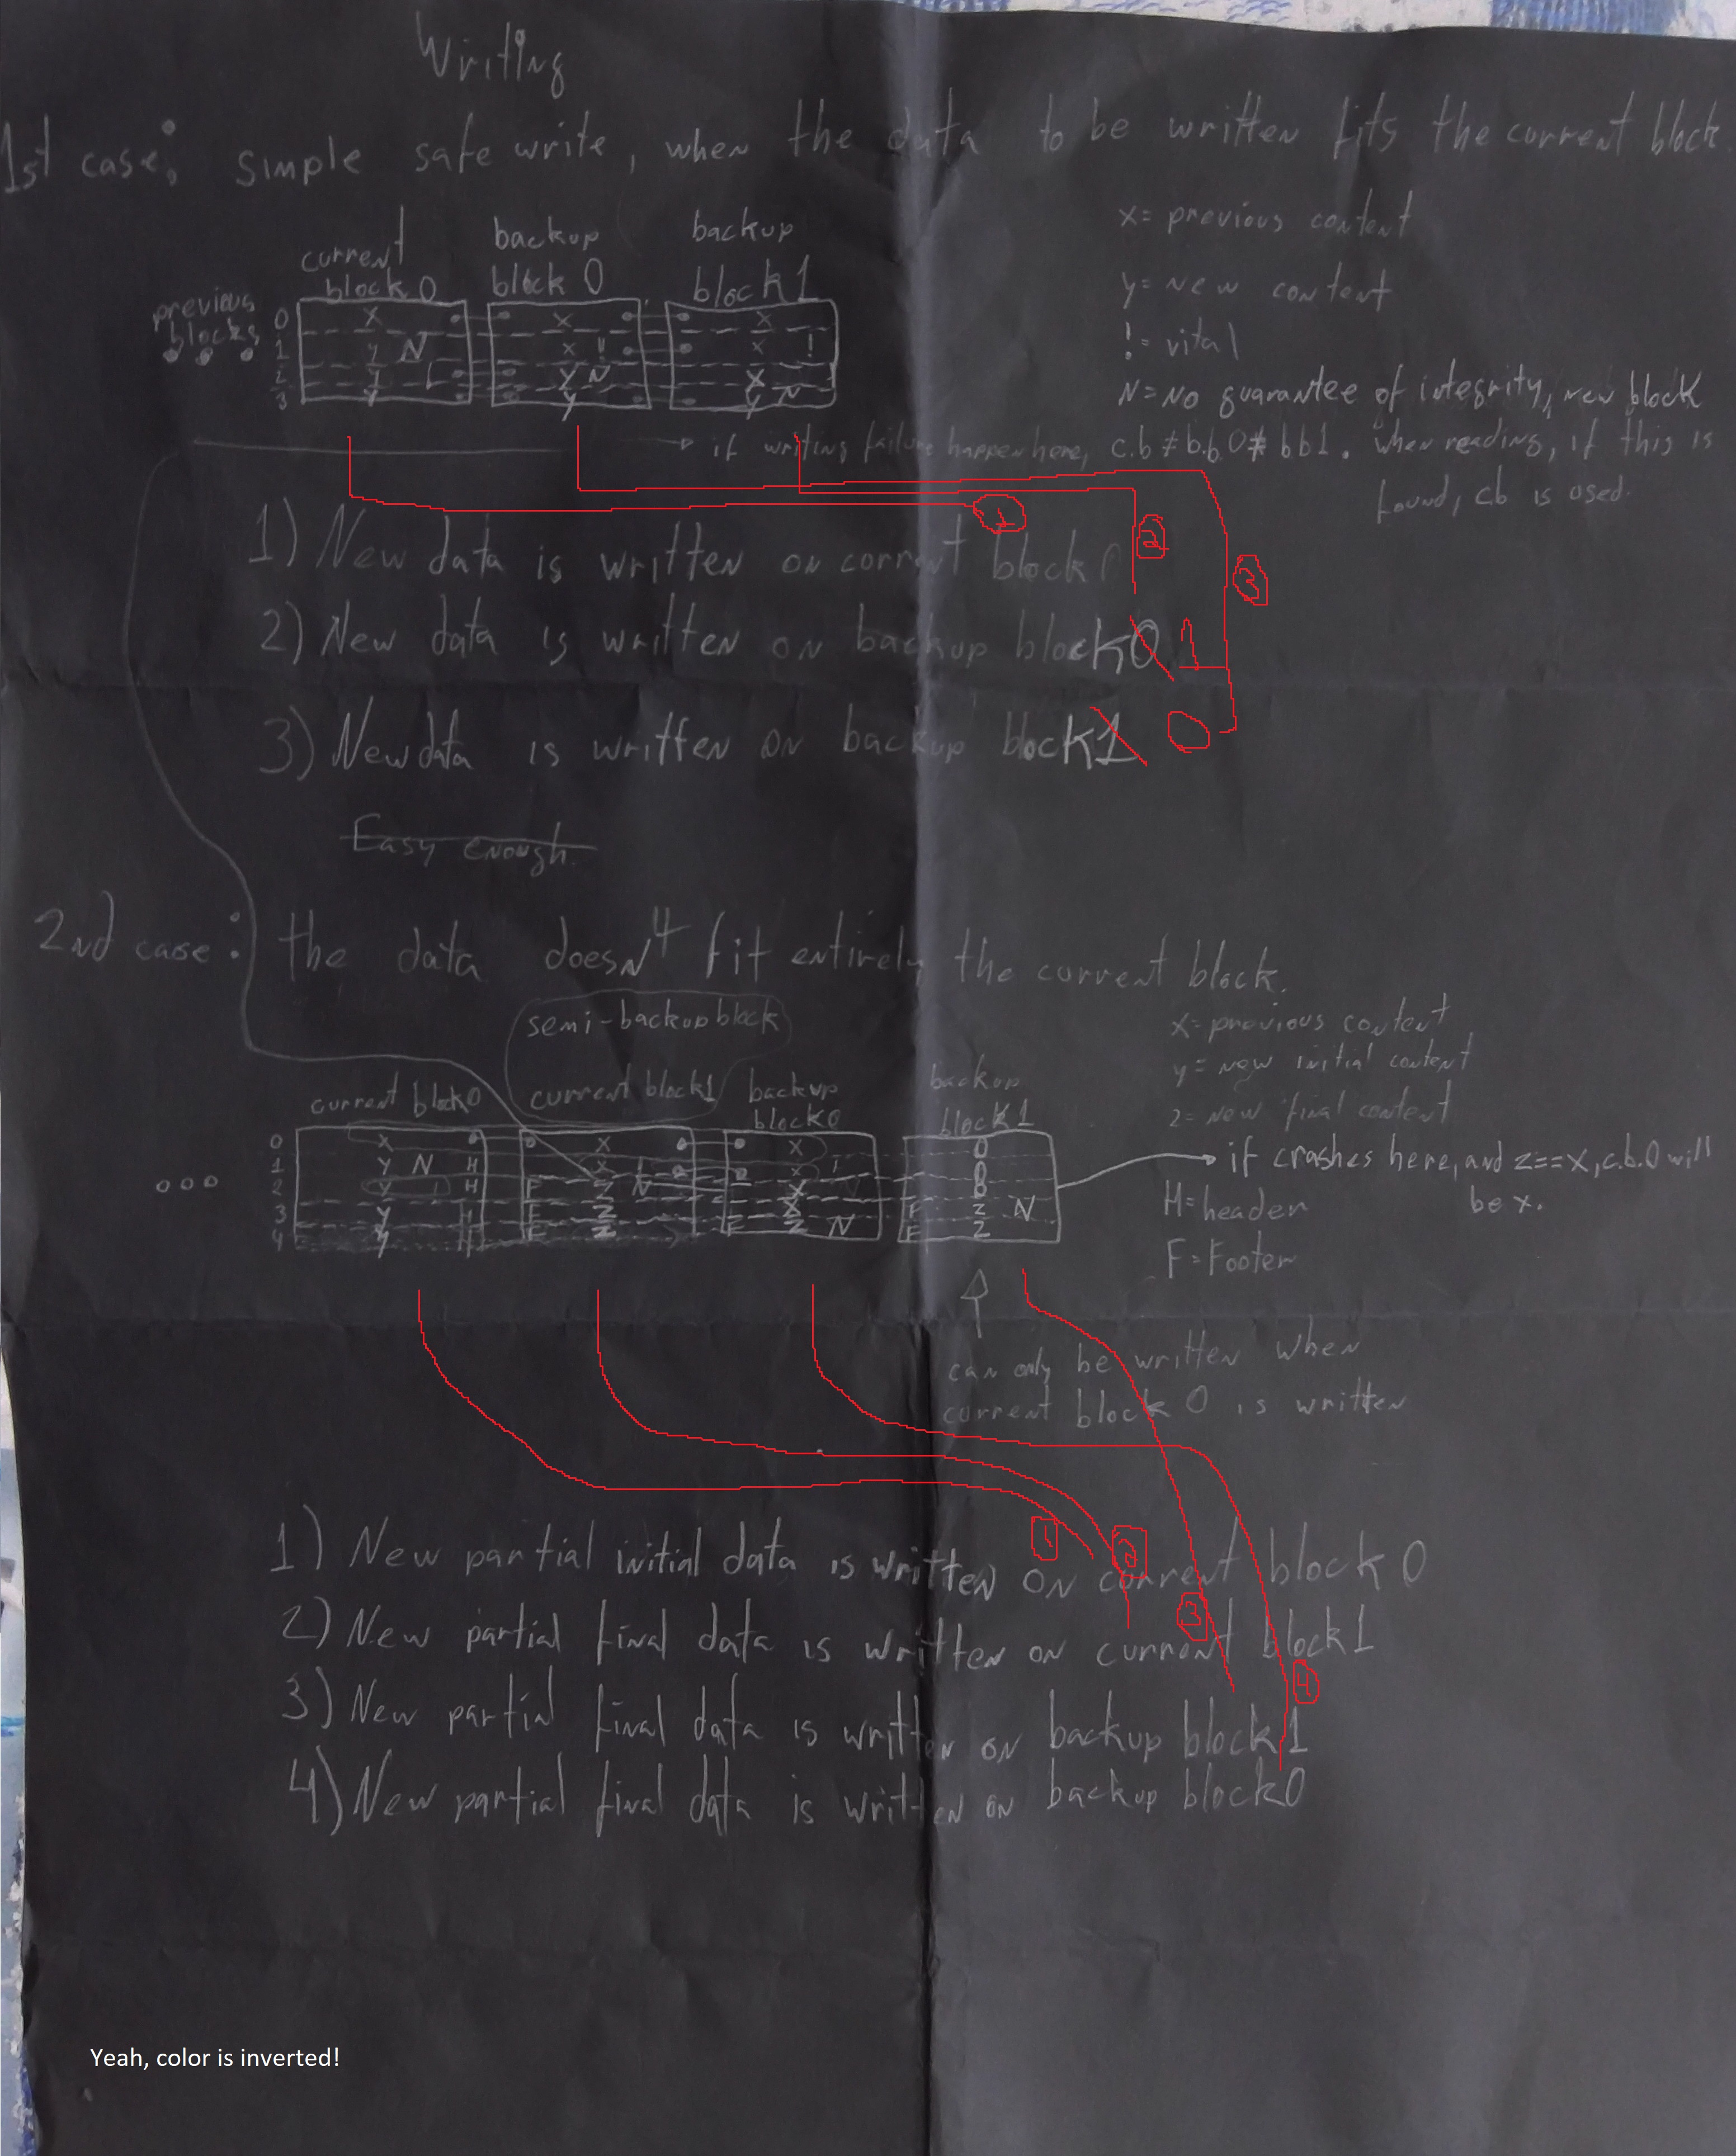 Writing
1st case: simple safe write, when the data to be written fits the current block.
current block 0
backup block 0
backup block 1
previous blocks
0 X X X
1 y N x ! x !
2 y ! y N X
3 y y y N
x = previous content
y = new content
! = vital
N = No guarantee of integrity, new block
if writing failure happen here, c.b ≠ b.b 0 ≠ bb1. When reading, if this is
found, cb is used.
1) New data is written on current block 0
1
2) New data is written on backup block 0 1
2
3) New data is written on backup block 1 0
3
Easy enough.
2nd case: the data doesn4 fit entirely the current block.
semi-backup block
current block 0
current block 1
backup block 0
backup block 1
0 X X X 0
1 y N H X ! X ! 0
2 y ! H F Z N X 0
3 y H F Z X F Z N
4 y H F Z F Z N F Z
x = previous content
y = new initial content
z = new final content
if crashes here, and z==x, c.b.0 will
be x.
H = header
F = Footer
can only be written when
current block 0 is written
1) New partial initial data is written on current block 0
1
2) New partial final data is written on current block 1
2
3) New partial final data is written on backup block 1
3
4) New partial final data is written on backup block 0
4
Yeah, color is inverted!